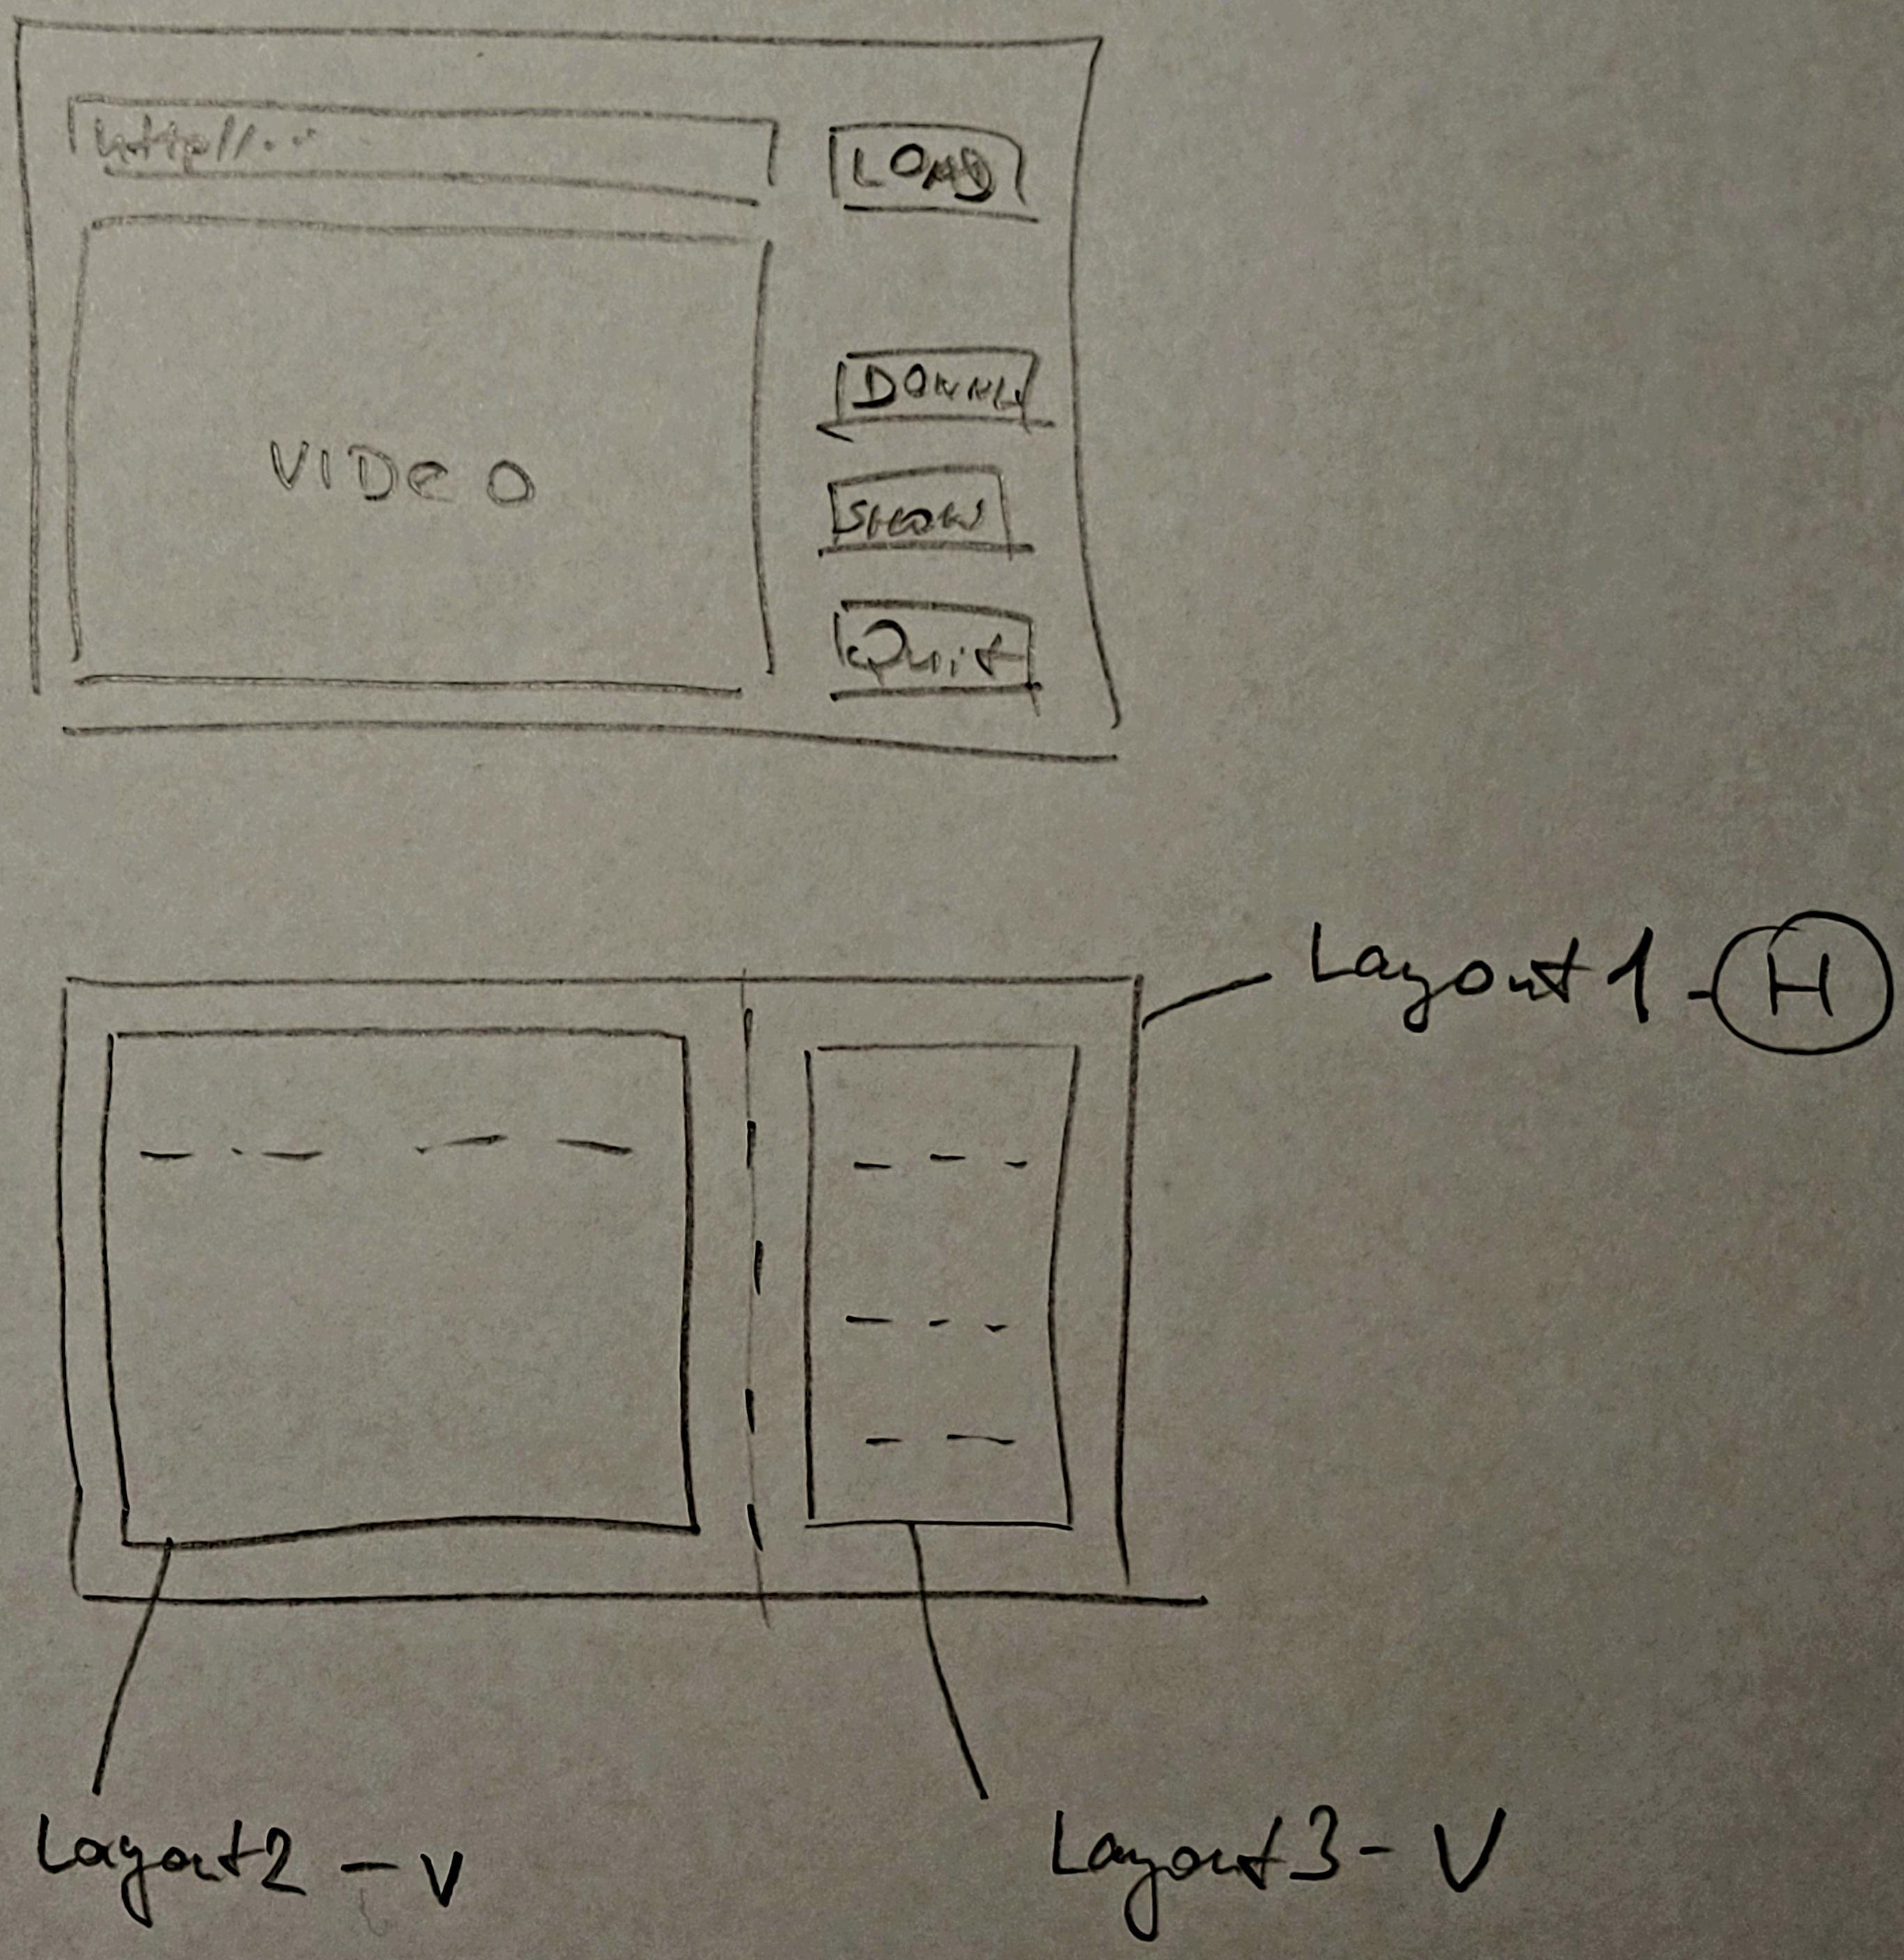 http//...
LOAD
DOWNL
VIDeO
SHOW
Quit
Layout 1 - H
Layout2 - V
Layout3 - V